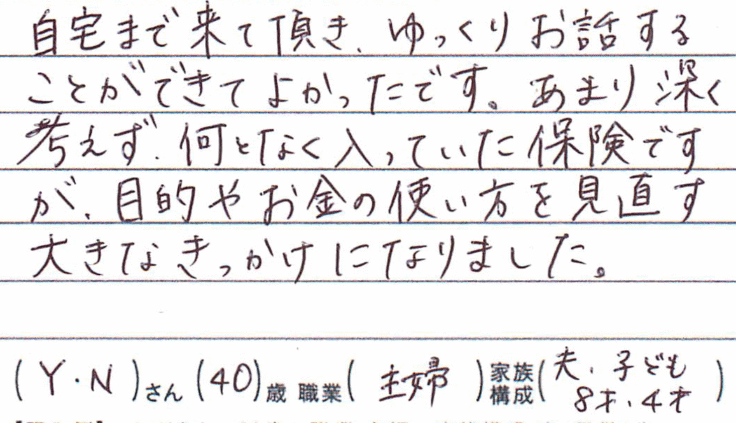 自宅まで来て頂き、ゆっくりお話する
ことができてよかったです。あまり深く
考えず、何となく入っていた保険です
が、目的やお金の使い方を見直す
大きなきっかけになりました。
(Y・N)さん(40)歳 職業(主婦)家族構成(夫、子ども 8才・4才)